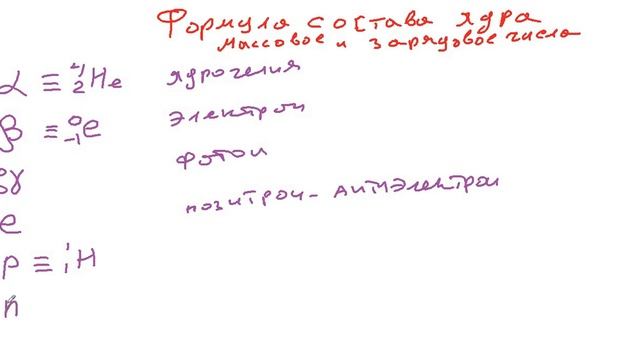 Формула состава ядра
массовое и зарядовое число
α ≡ ⁴₂He ядро гелия
β ≡ ⁰₋₁e электрон
γ фотон
e позитрон - антиэлектрон
p ≡ ¹₁H
n